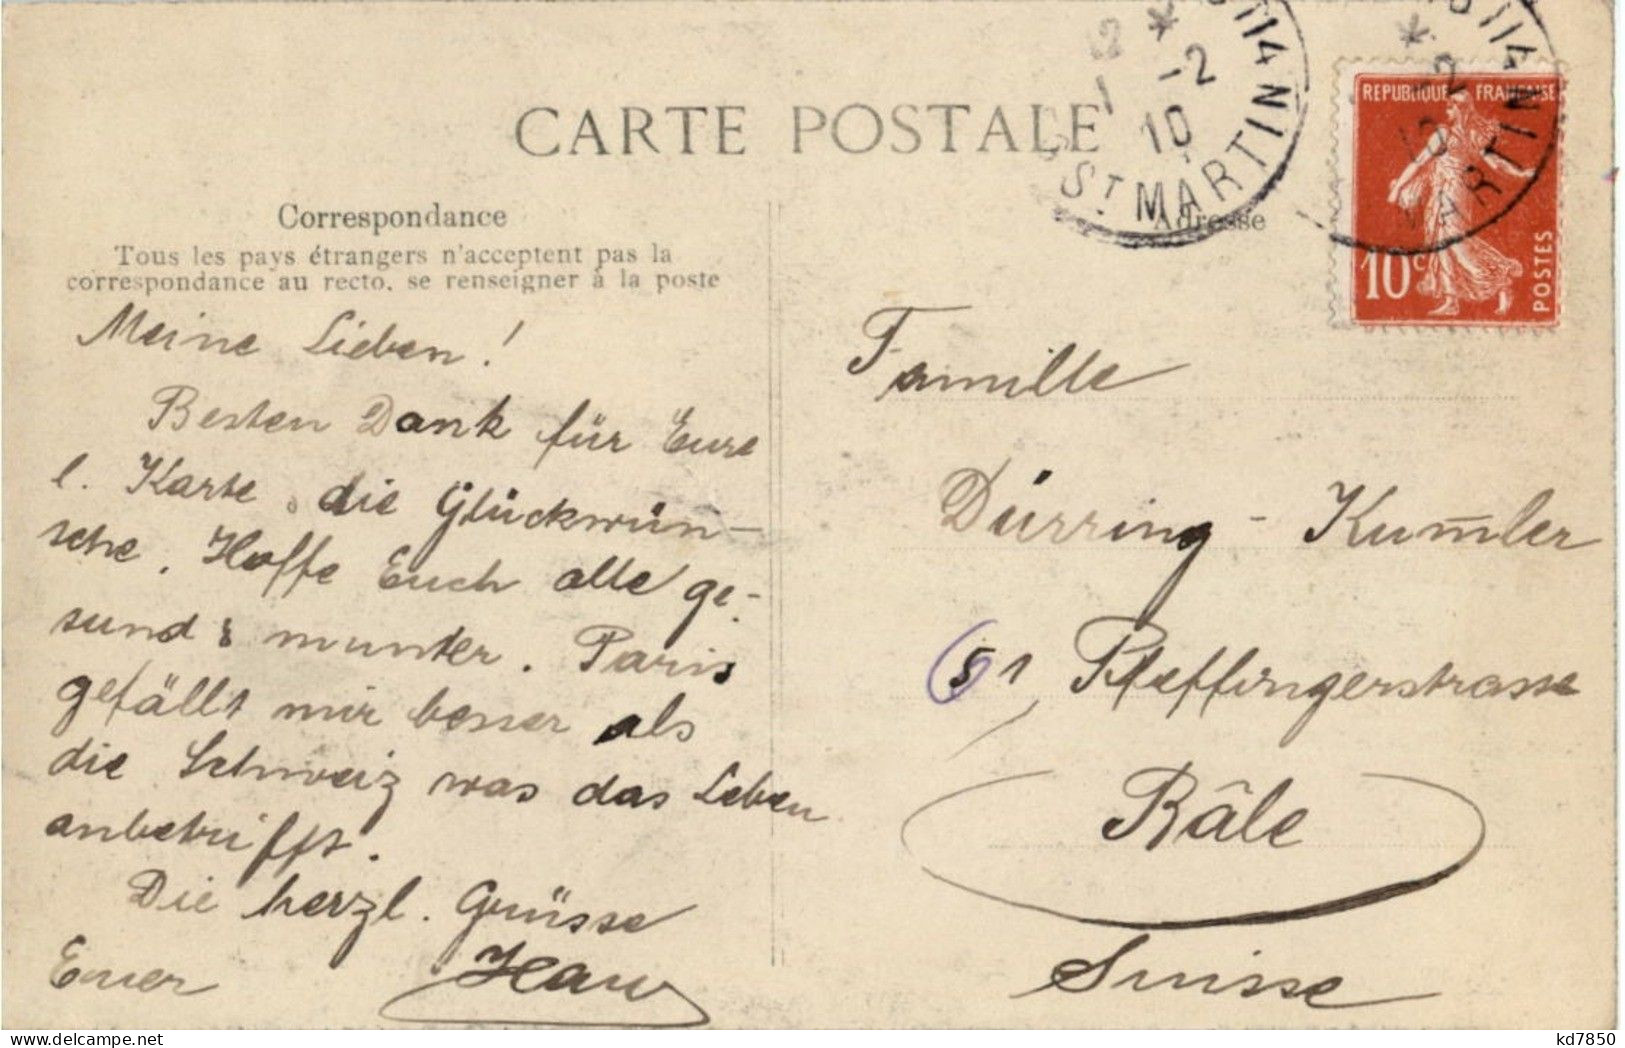 CARTE POSTALE
Correspondance
Tous les pays étrangers n'acceptent pas la
correspondance au recto, se renseigner à la poste
Adresse
12 * 1 -2
10
ST MARTIN
* -2
10
MARTIN
REPUBLIQUE FRANÇAISE
10c
POSTES
Meine Lieben!
Besten Dank für Eure
l. Karte, die Glückwün-
sche. Hoffe Euch alle ge-
sund & munter. Paris
gefällt mir besser als
die Schweiz was das Leben
anbetrifft.
Die herzl. Grüsse
Euer
Famille
Dürring - Kum̅ler
51 Pfeffingerstrasse
Bâle
Suisse
kd7850